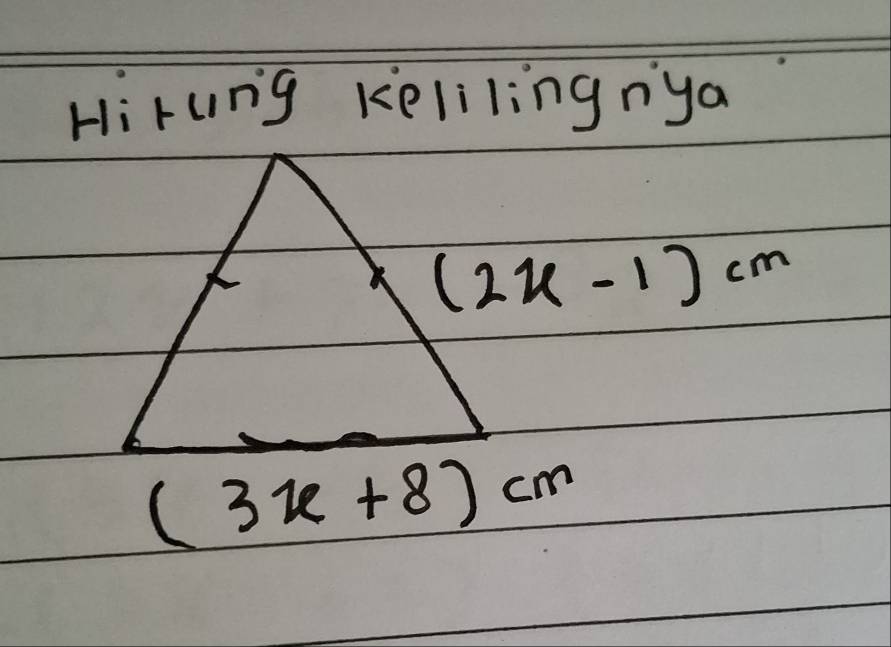 Hitung Kelilingnya
(2x - 1) cm
(3x + 8) cm